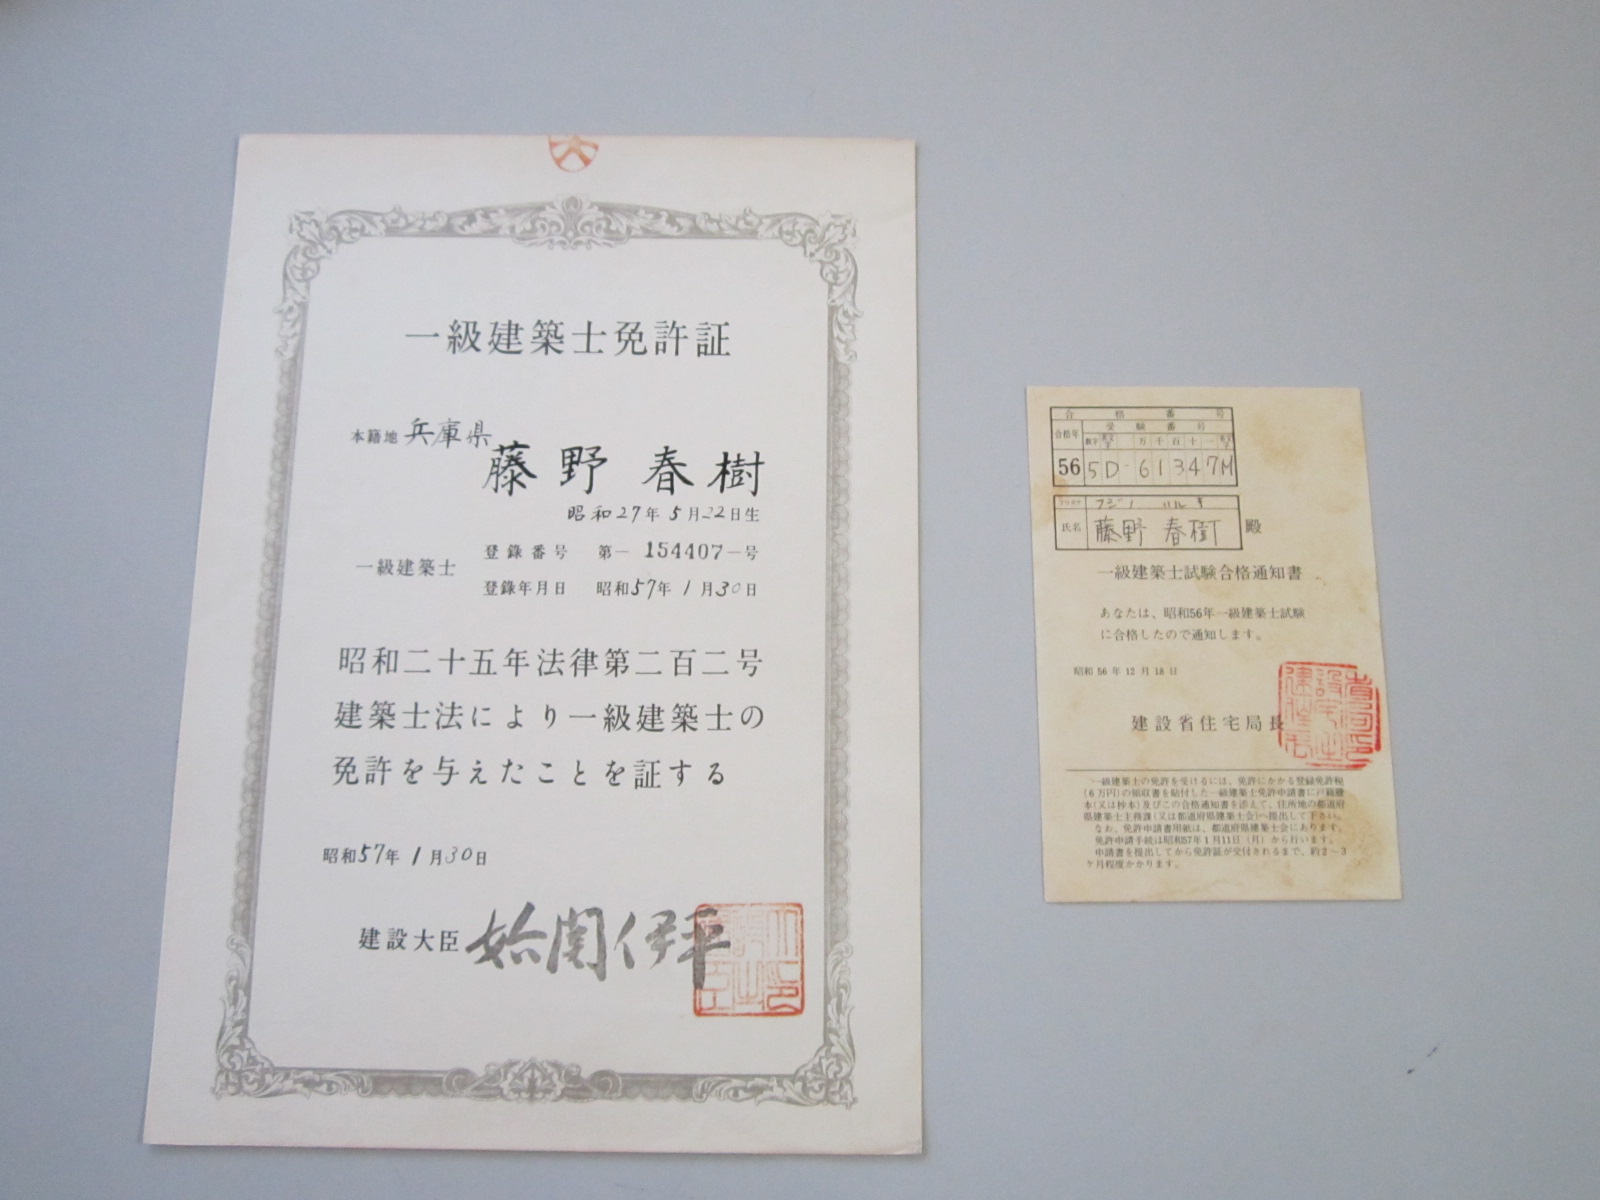 一級建築士免許証
本籍地 兵庫県
藤野 春樹
昭和27年5月22日生
一級建築士
登録番号 第-154407-号
登録年月日 昭和57年1月30日
昭和二十五年法律第二百二号
建築士法により一級建築士の
免許を与えたことを証する
昭和57年1月30日
建設大臣 始関伊平
合格番号
合格年 受験番号
数字 英文字 万千百十一 英文字
56 5D-61347M
フリガナ フジノ ハルキ
氏名 藤野 春樹 殿
一級建築士試験合格通知書
あなたは、昭和56年一級建築士試験
に合格したので通知します。
昭和56年12月18日
建設省住宅局長
一級建築士の免許を受けるには、免許にかかる登録免許税
(6万円)の領収書を貼付した一級建築士免許申請書に戸籍謄
本(又は抄本)及びこの合格通知書を添えて、住所地の都道府
県建築士主務課(又は都道府県建築士会)へ提出して下さい。
なお、免許申請書用紙は、都道府県建築士会にあります。
免許申請手続は昭和57年1月11日(月)から行います。
申請書を提出してから免許証が交付されるまで、約2~3
ケ月程度かかります。